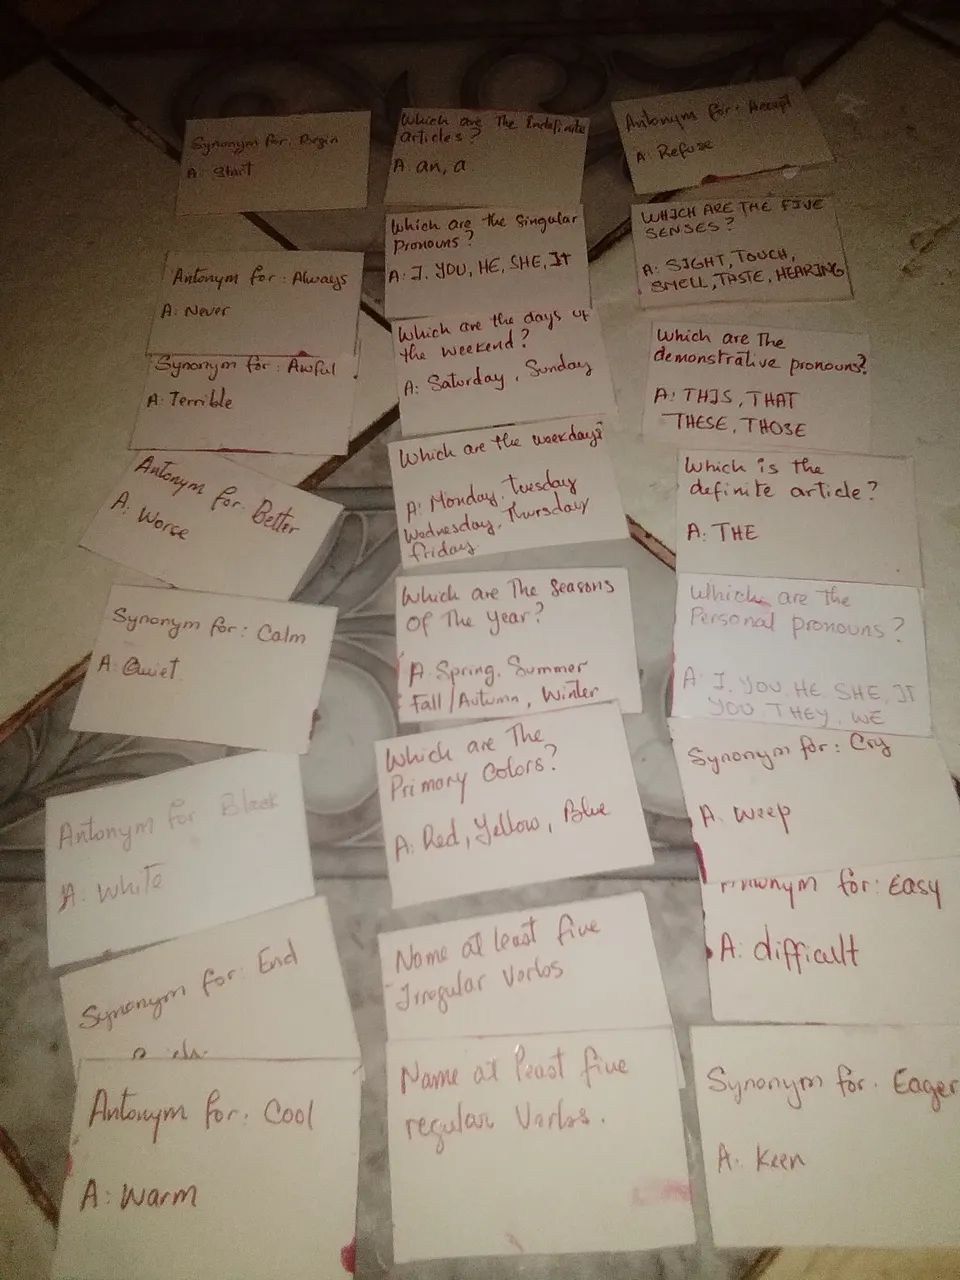 Synonym for: Begin
A: Start
Antonym for: Always
A: Never
Synonym for: Awful
A: Terrible
Antonym for: Better
A: Worse
Synonym for: Calm
A: Quiet
Antonym for Black
A: White
Synonym for: End
Antonym for: Cool
A: Warm
Which are The Endefinite
articles?
A: an, a
Which are the singular
Pronouns?
A: I, YOU, HE, SHE, IT
Which are the days of
the weekend?
A: Saturday, Sunday
Which are the weekdays?
A: Monday, Tuesday
Wednesday, Thursday
friday
Which are The Seasons
Of The Year?
A: Spring, Summer
Fall/Autumn, Winter
Which are The
Primary Colors?
A: Red, Yellow, Blue
Name at least five
Irregular Verbs
Name at least five
regular Verbs.
Antonym for: Accept
A: Refuse
WHICH ARE THE FIVE
SENSES?
A: SIGHT, TOUCH,
SMELL, TASTE, HEARING
Which are The
demonstrative pronouns?
A: THIS, THAT
THESE, THOSE
Which is the
definite article?
A: THE
Which are the
Personal pronouns?
A: I, YOU, HE, SHE, IT
YOU THEY, WE
Synonym for: Cry
A: Weep
for: Easy
A: difficult
Synonym for: Eager
A: Keen